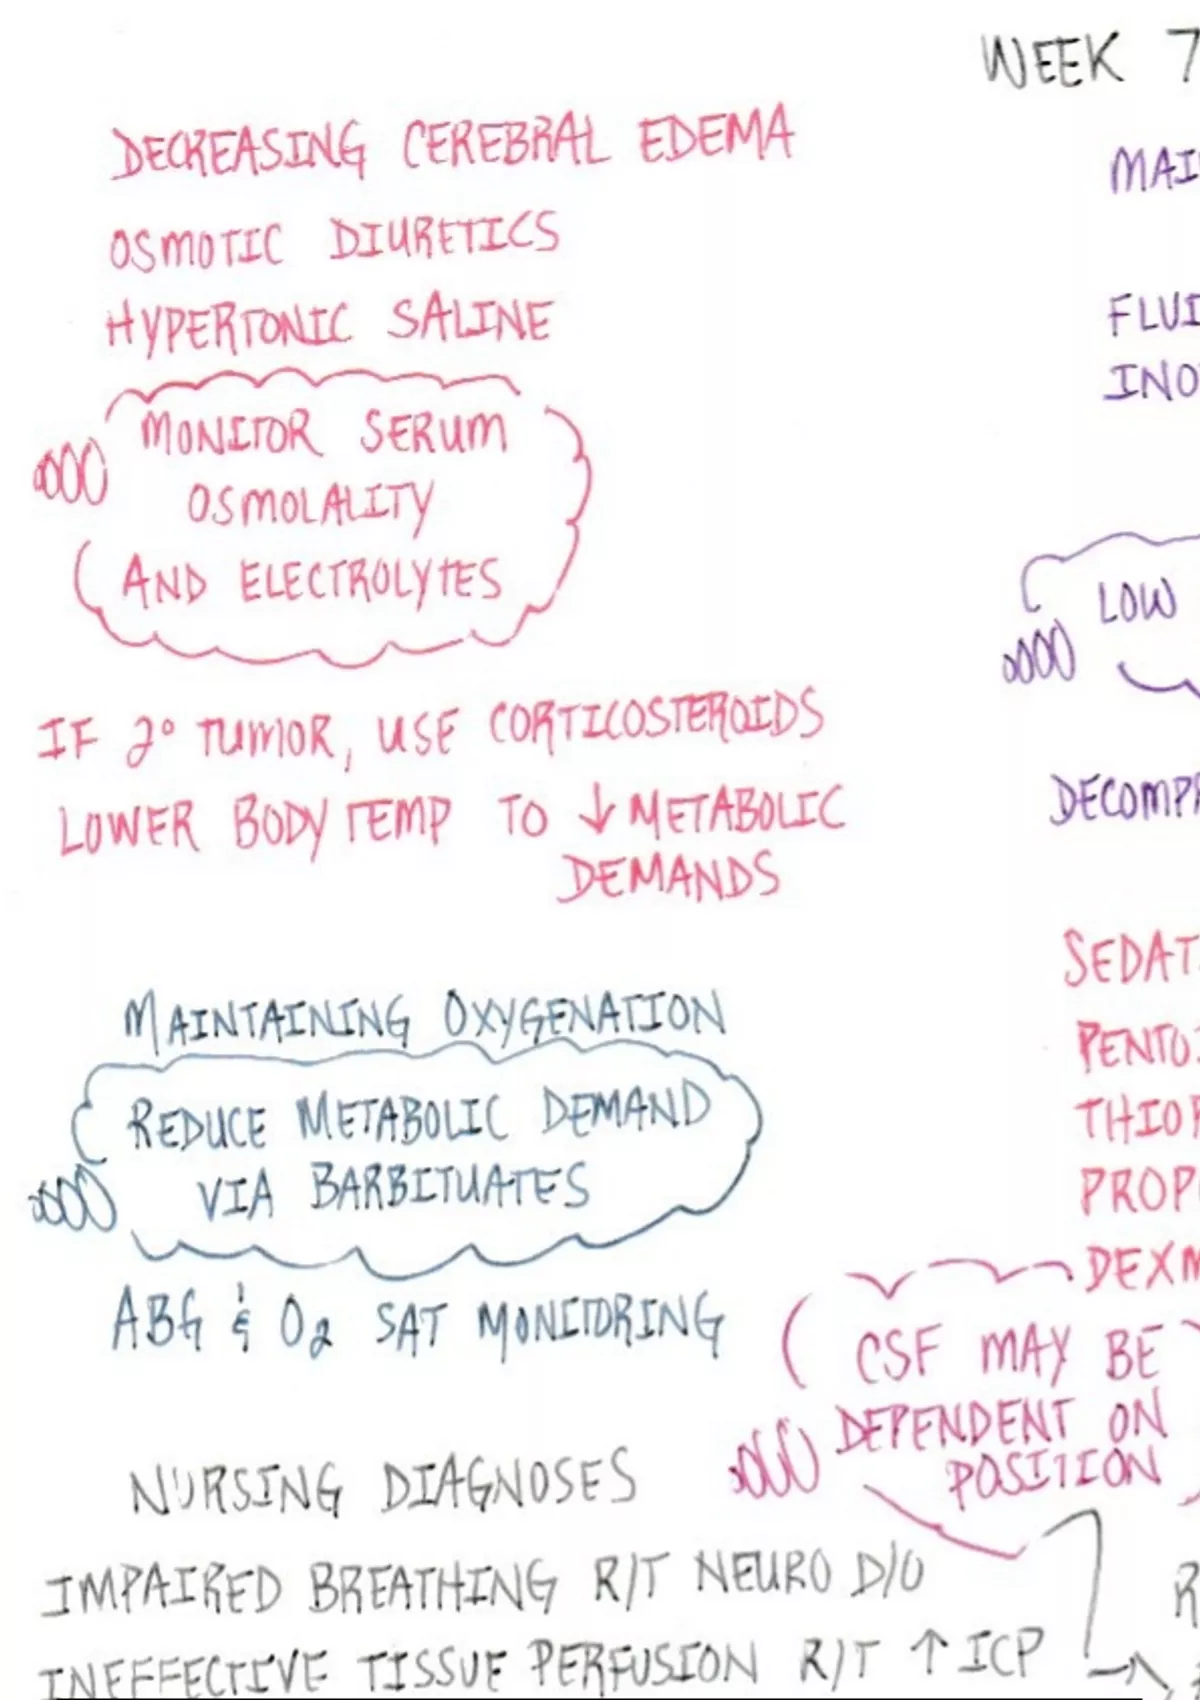 WEEK 7
DECREASING CEREBRAL EDEMA
OSMOTIC DIURETICS
HYPERTONIC SALINE
MONITOR SERUM
OSMOLALITY
AND ELECTROLYTES
IF 2° TUMOR, USE CORTICOSTEROIDS
LOWER BODY TEMP TO ↓ METABOLIC
DEMANDS
MAINTAINING OXYGENATION
REDUCE METABOLIC DEMAND
VIA BARBITUATES
ABG & O2 SAT MONITORING
NURSING DIAGNOSES
IMPAIRED BREATHING R/T NEURO D/O
INEFFECTIVE TISSUE PERFUSION R/T ↑ ICP
MAI
FLUI
INO
LOW
DECOMPR
SEDAT
PENTO
THIOP
PROP
DEXM
CSF MAY BE
DEPENDENT ON
POSITION
R